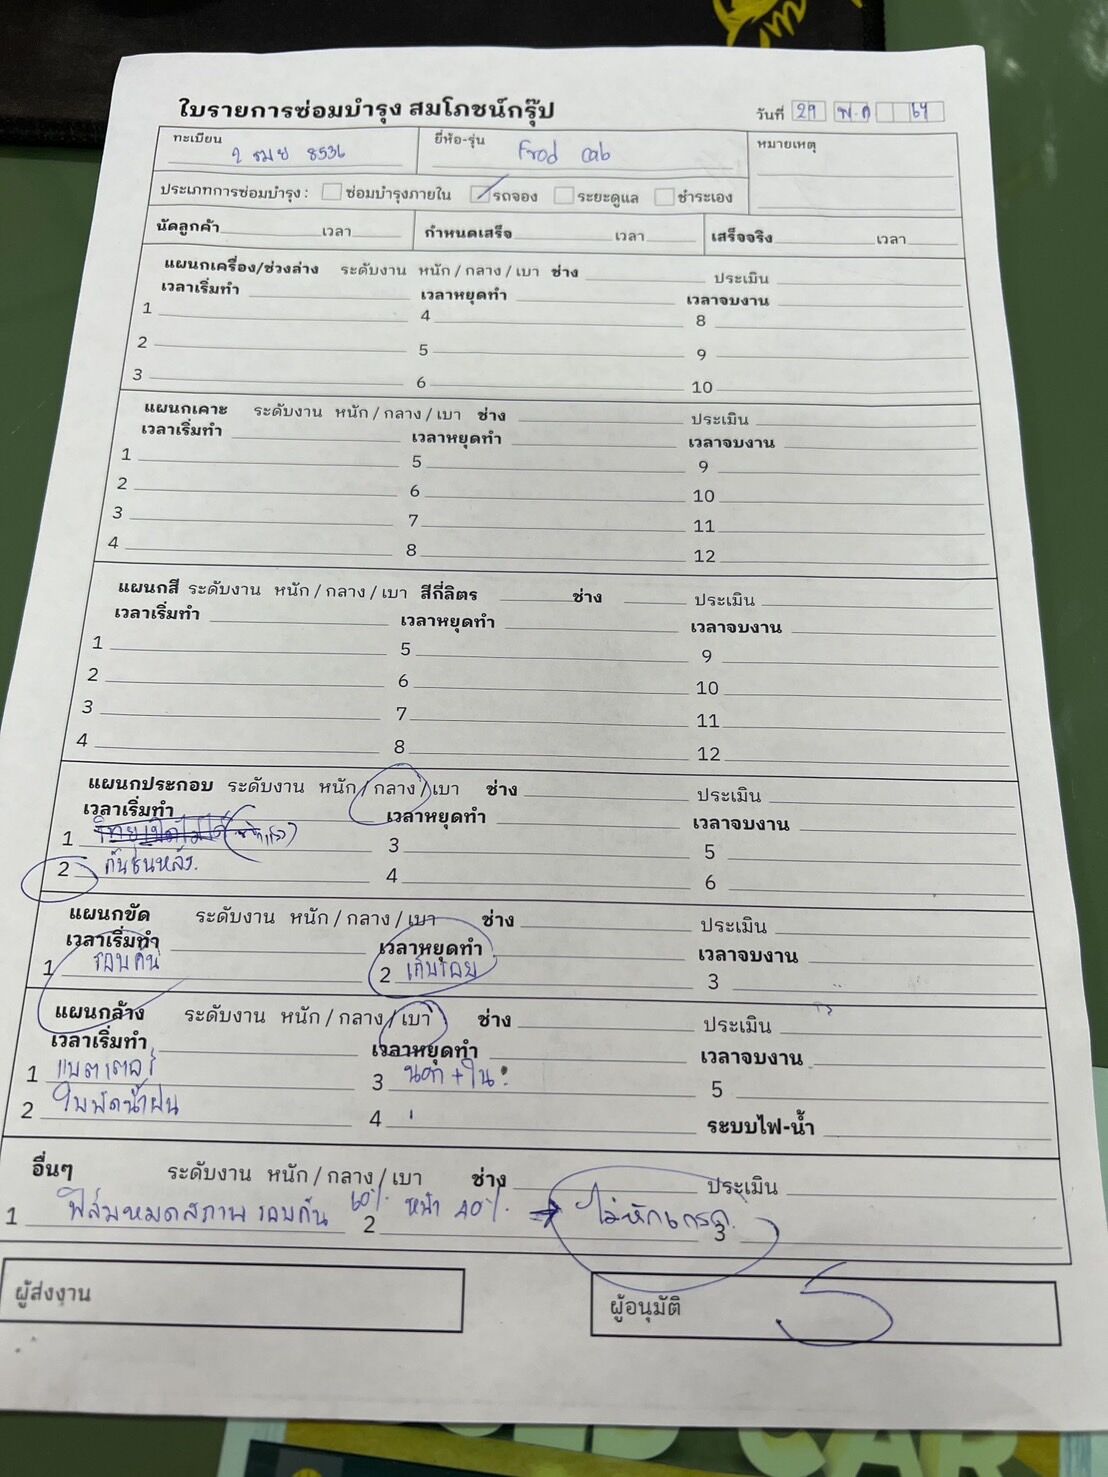 ใบรายการซ่อมบำรุง สมโภชน์กรุ๊ป
วันที่ 29 พ.ค 67
ทะเบียน 2 ฒย 8536
ยี่ห้อ-รุ่น Frod cab
หมายเหตุ
ประเภทการซ่อมบำรุง : ซ่อมบำรุงภายใน รถจอง ระยะดูแล ชำระเอง
นัดลูกค้า เวลา กำหนดเสร็จ เวลา เสร็จจริง เวลา
แผนกเครื่อง/ช่วงล่าง ระดับงาน หนัก / กลาง / เบา ช่าง ประเมิน
เวลาเริ่มทำ เวลาหยุดทำ เวลาจบงาน
1 4 8
2 5 9
3 6 10
แผนกเคาะ ระดับงาน หนัก / กลาง / เบา ช่าง ประเมิน
เวลาเริ่มทำ เวลาหยุดทำ เวลาจบงาน
1 5 9
2 6 10
3 7 11
4 8 12
แผนกสี ระดับงาน หนัก / กลาง / เบา สีกี่ลิตร ช่าง ประเมิน
เวลาเริ่มทำ เวลาหยุดทำ เวลาจบงาน
1 5 9
2 6 10
3 7 11
4 8 12
แผนกประกอบ ระดับงาน หนัก / กลาง / เบา ช่าง ประเมิน
เวลาเริ่มทำ เวลาหยุดทำ เวลาจบงาน
1 วิทยุเปิดไม่ได้ 3 5
2 กันชนหลัง. 4 6
แผนกขัด ระดับงาน หนัก / กลาง / เบา ช่าง ประเมิน
เวลาเริ่มทำ เวลาหยุดทำ เวลาจบงาน
1 รอบคัน 2 เก็บรอย 3
แผนกล้าง ระดับงาน หนัก / กลาง / เบา ช่าง ประเมิน
เวลาเริ่มทำ เวลาหยุดทำ เวลาจบงาน
1 แบตเตอรี่ 3 นอก + ใน 5
2 ใบพัดน้ำฝน 4 ระบบไฟ-น้ำ
อื่นๆ ระดับงาน หนัก / กลาง / เบา ช่าง ประเมิน
1 ฟิล์มหมดสภาพ รอบคัน 60% 2 หน้า 40% → ไม่หักเกรด. 3
ผู้ส่งงาน
ผู้อนุมัติ